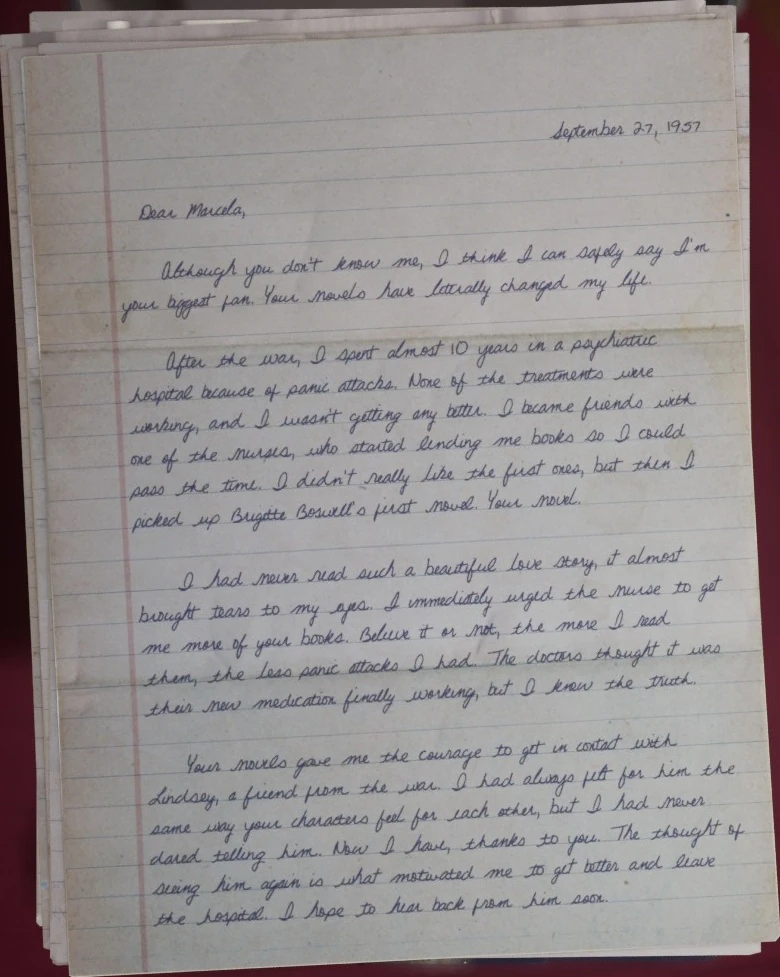 September 27, 1957
Dear Marcela,
Although you don't know me, I think I can safely say I'm
your biggest fan. Your novels have literally changed my life.
After the war, I spent almost 10 years in a psychiatric
hospital because of panic attacks. None of the treatments were
working, and I wasn't getting any better. I became friends with
one of the nurses, who started lending me books so I could
pass the time. I didn't really like the first ones, but then I
picked up Brigitte Boswell's first novel. Your novel.
I had never read such a beautiful love story, it almost
brought tears to my eyes. I immediately urged the nurse to get
me more of your books. Believe it or not, the more I read
them, the less panic attacks I had. The doctors thought it was
their new medication finally working, but I know the truth.
Your novels gave me the courage to get in contact with
Lindsey, a friend from the war. I had always felt for him the
same way your characters feel for each other, but I had never
dared telling him. Now I have, thanks to you. The thought of
seeing him again is what motivated me to get better and leave
the hospital. I hope to hear back from him soon.